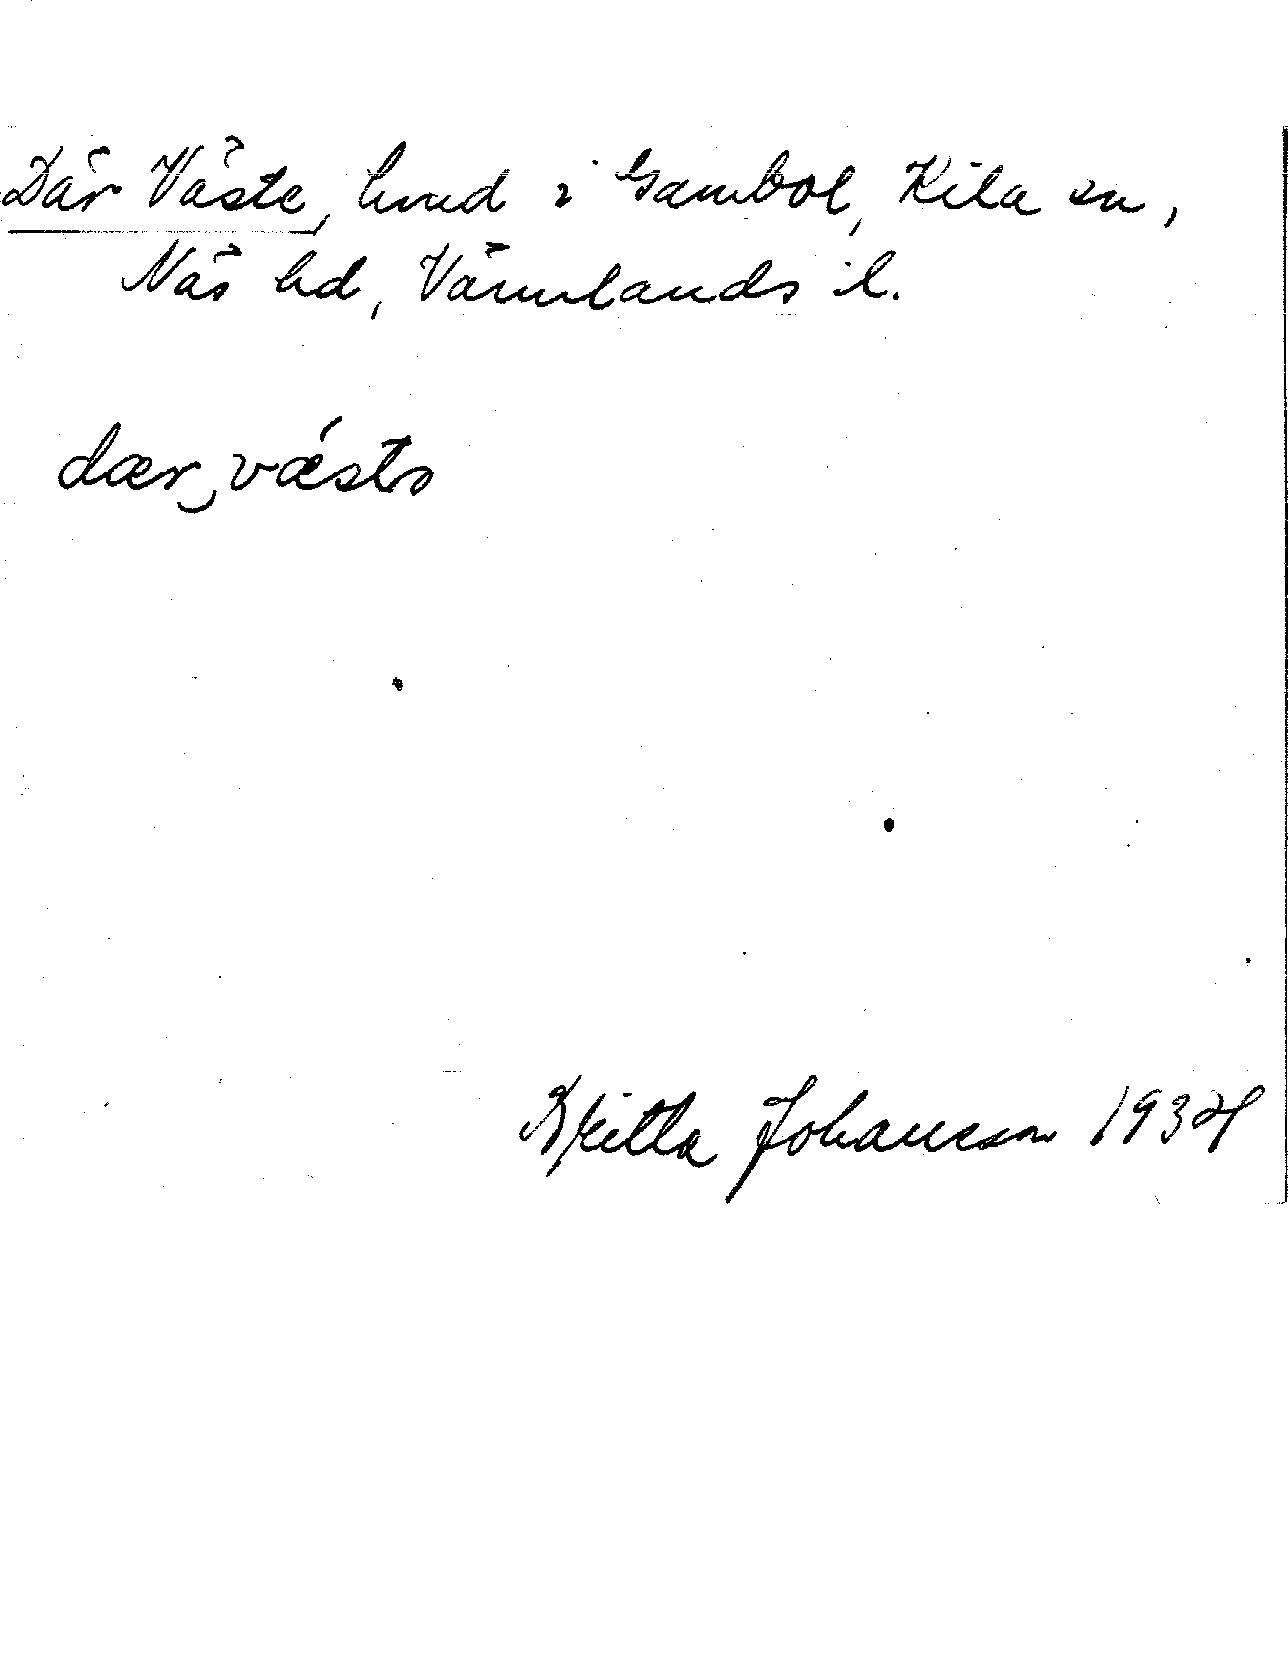 Där Väste, hmd i Gambol, Kila sn,
Näs hd, Värmlands l.
dær‿vǽstə
Britta Johansson 1934